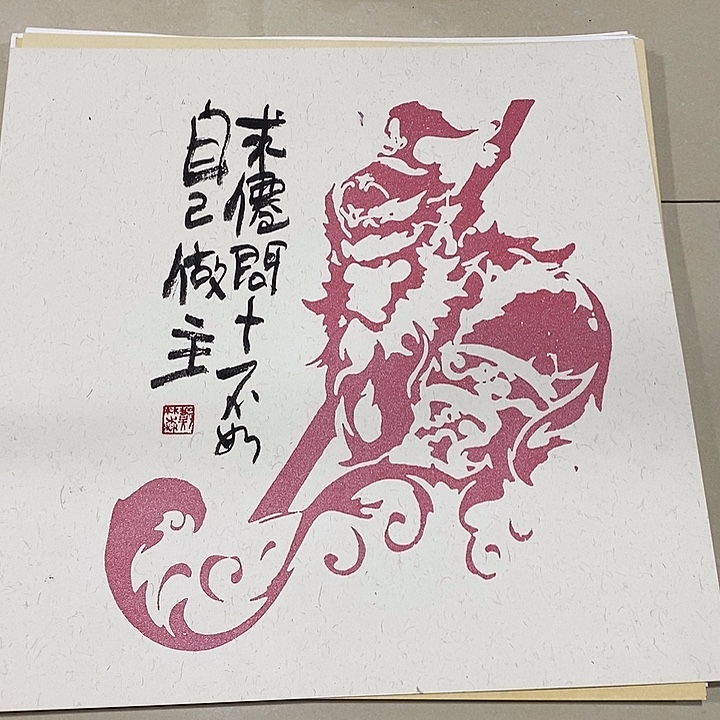 求僊問十不如
自己做主